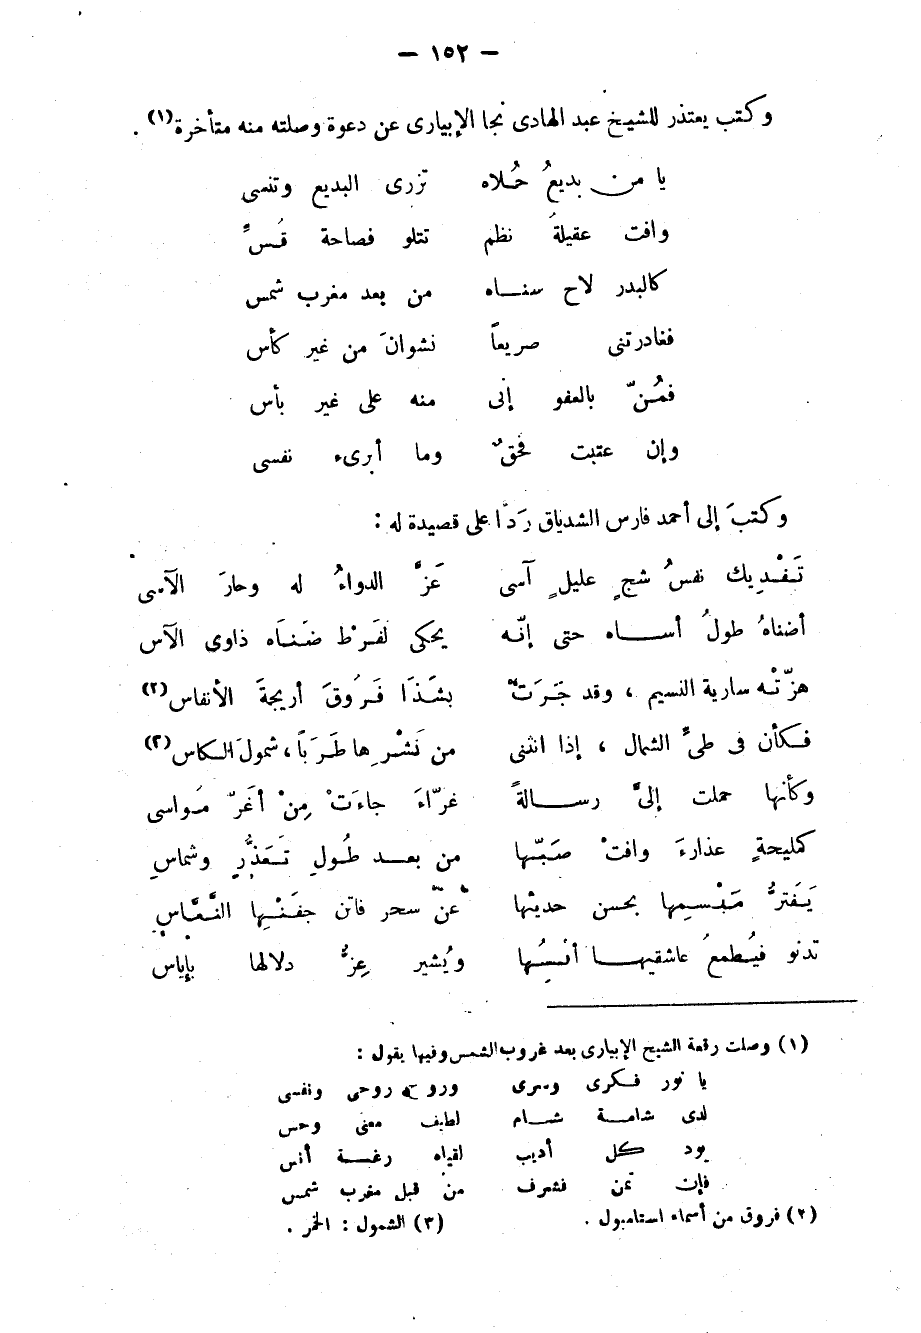 — ١٥٢ —
وكتب يعتذر للشيخ عبد الهادى نجا الإبيارى عن دعوة وصلته منه متأخرة (١) .
يا من بديعُ حُلاه تزرى البديع وتنسى
وافت عقيلةُ نظم تتلو فصاحة قُسٍّ
كالبدر لاح سناه من بعد مغرب شمس
فغادرتنى صريعاً نشوانَ من غير كأس
فمُنّ بالعفو إنى منه على غير بأس
وإن عتبت فحقٌ وما أبرىء نفسى
وكتبَ إلى أحمد فارس الشدياق رَدًّا على قصيدة له :
تَفْدِيك نفسُ شجٍ عليلٍ آسى عَزَّ الدواءُ له وحارَ الآسى
أضناهُ طولُ أساه حتى إنّه يحكى لفَرْط ضَنَاه ذاوى الآس
هزّتْه سارية النسيم ، وقد جَرَتْ بشَذَا فَرُوقَ أريجةَ الأنفاس (٢)
فكأن فى طىِّ الشمال ، إذا انثنى من نَشْرِها طَرَباً ، شمولَ الكاس (٣)
وكأنها حملت إلىَّ رسالةً غرّاءَ جاءَتْ مِنْ أغَرّ مَواسى
كمليحةٍ عذارءَ وافتْ صَبّها من بعد طُولِ تَعَذُّرٍ وشماسِ
يَفترُّ مَبْسِمها بحسن حديثها عنّ سحر فاتن جفَنْها النَّعَّاسِ
تدنو فيُطمعُ عاشقيها أنسُها ويُشير عِزُّ دلالها بإياس
(١) وصلت رقعة الشيخ الإبيارى بعد غروب الشمس وفيها يقول :
يا نور فكرى وسرى وروح روحى ونفسى
لدى شامة شام لطيف معنى وحس
يود كل أديب لقياه رغبة أنس
فإن تمن فشرف من قبل مغرب شمس
(٢) فروق من أسماء استامبول . (٣) الشمول : الخمر .